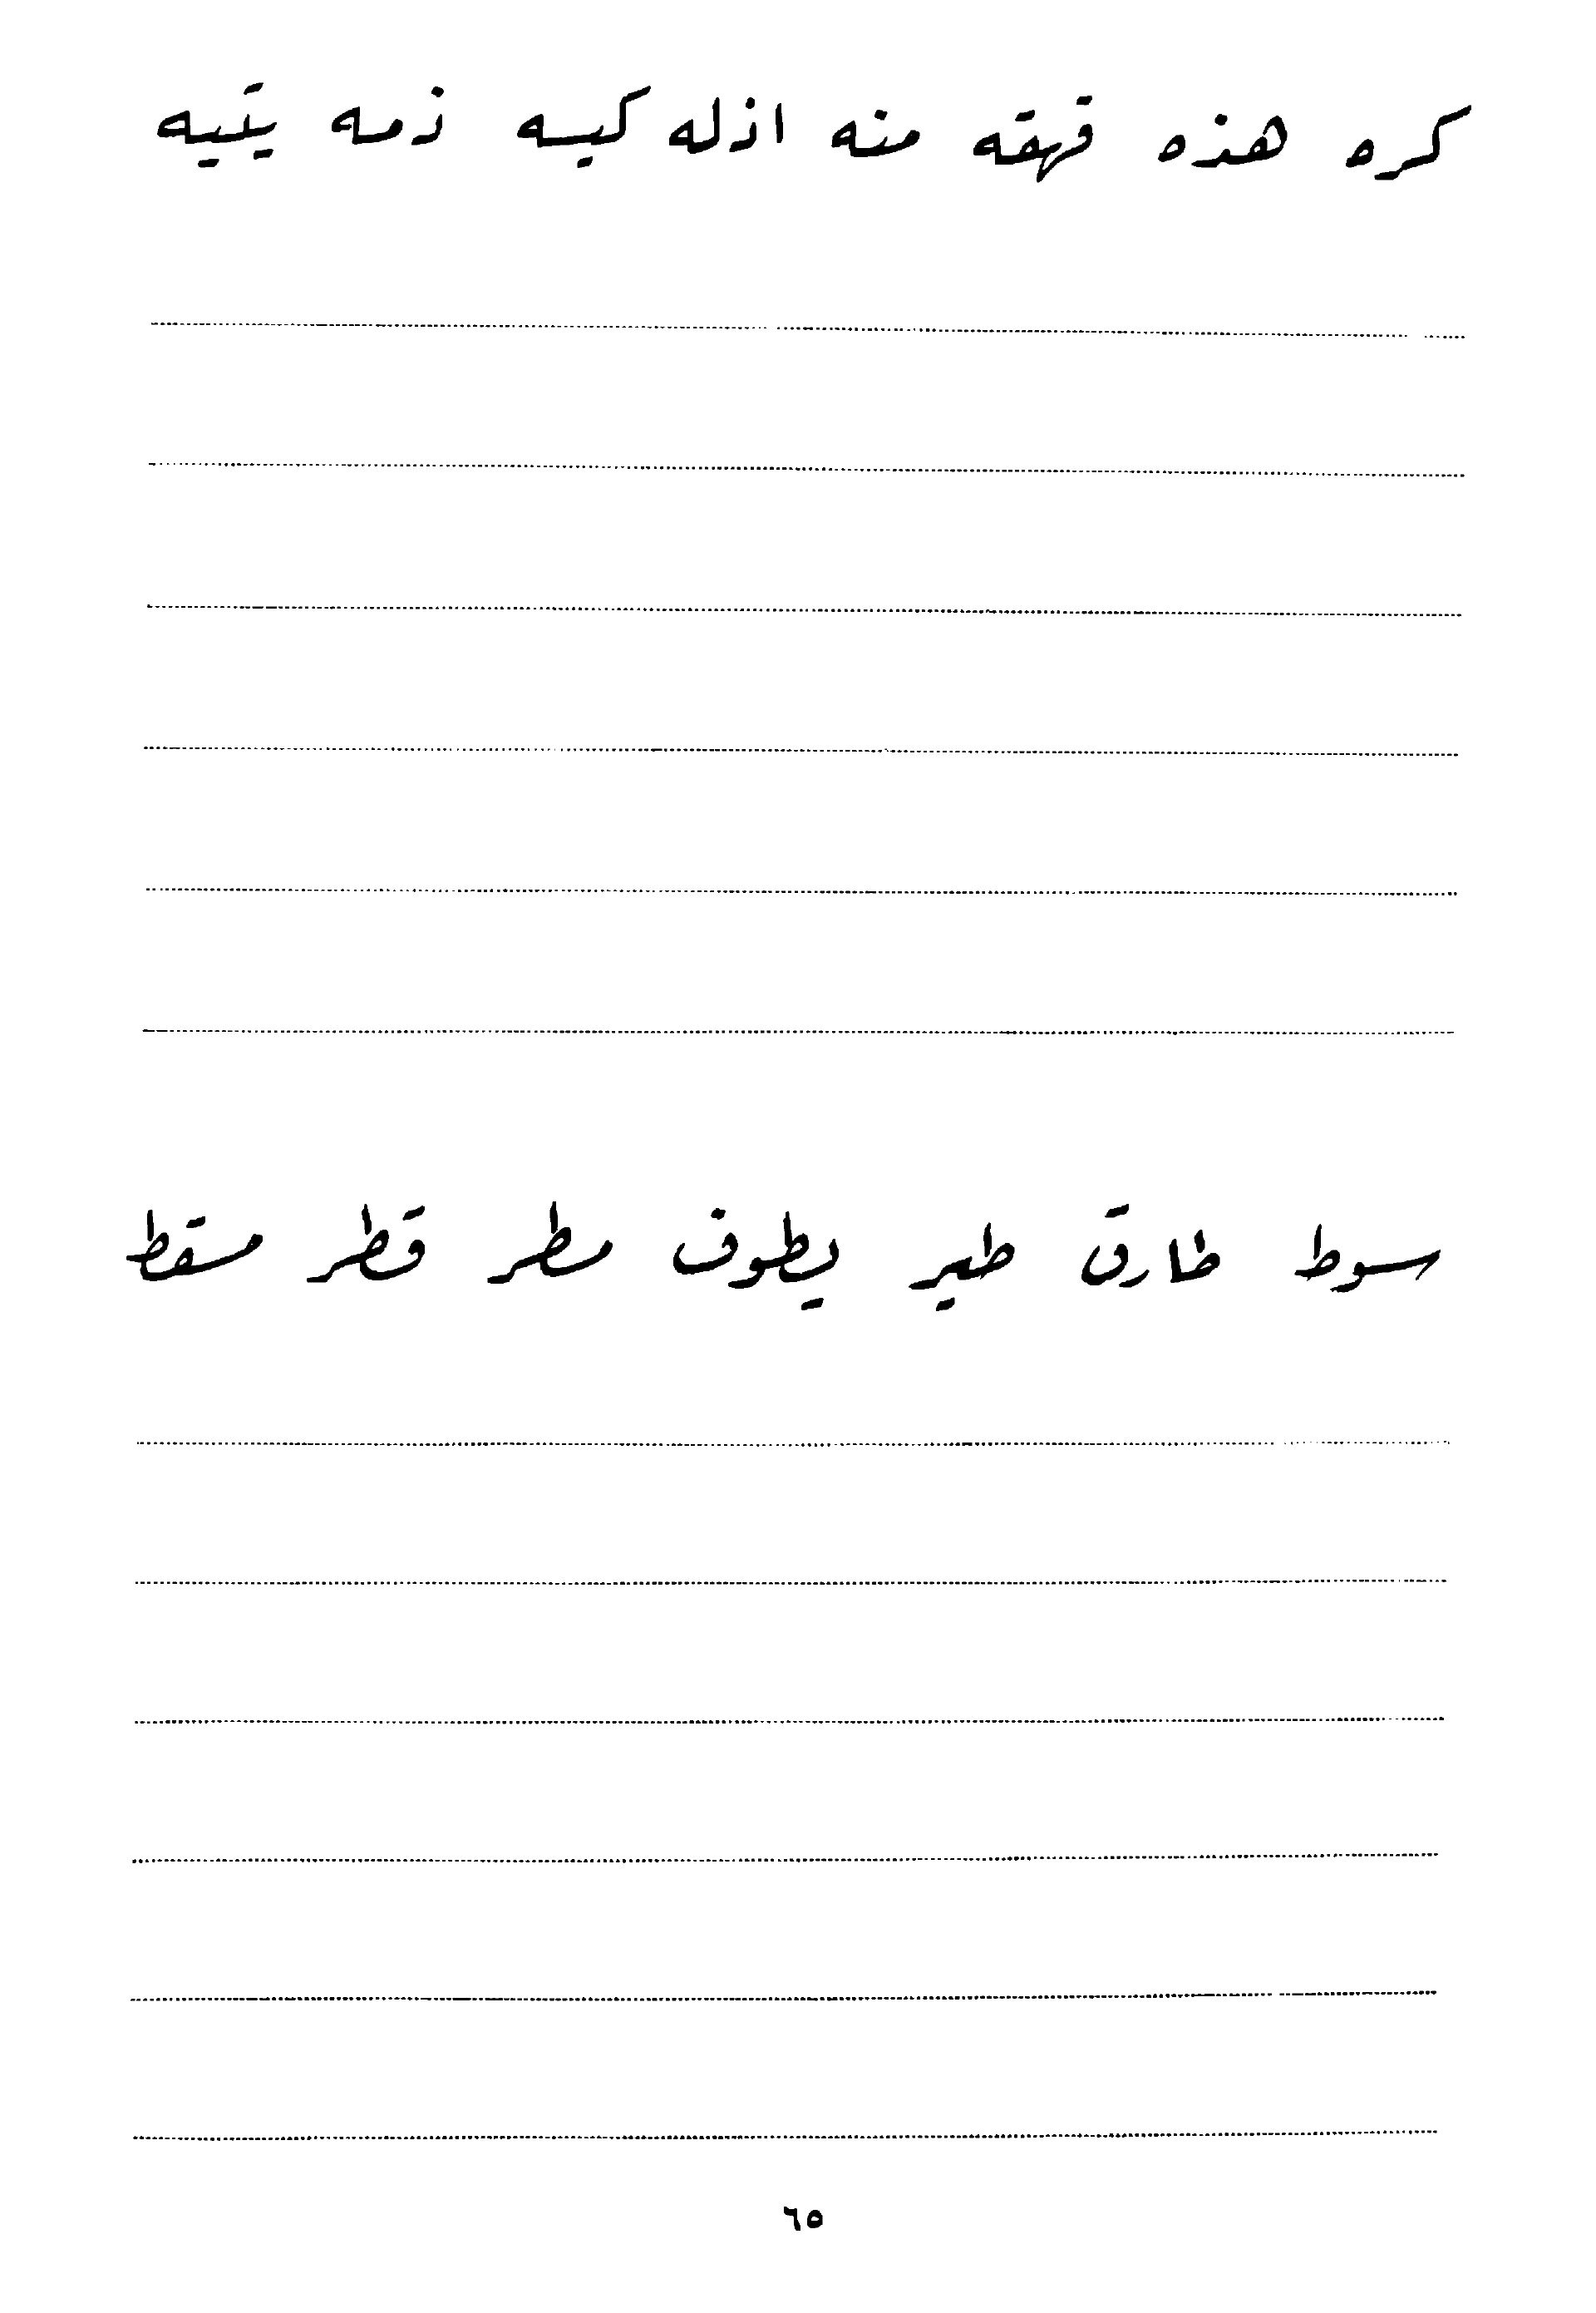 كره هذه قهقه منه اذله كيسه ذمه يتيه
سوط طارق طير يطوف مطر قطر مسقط
٦٥